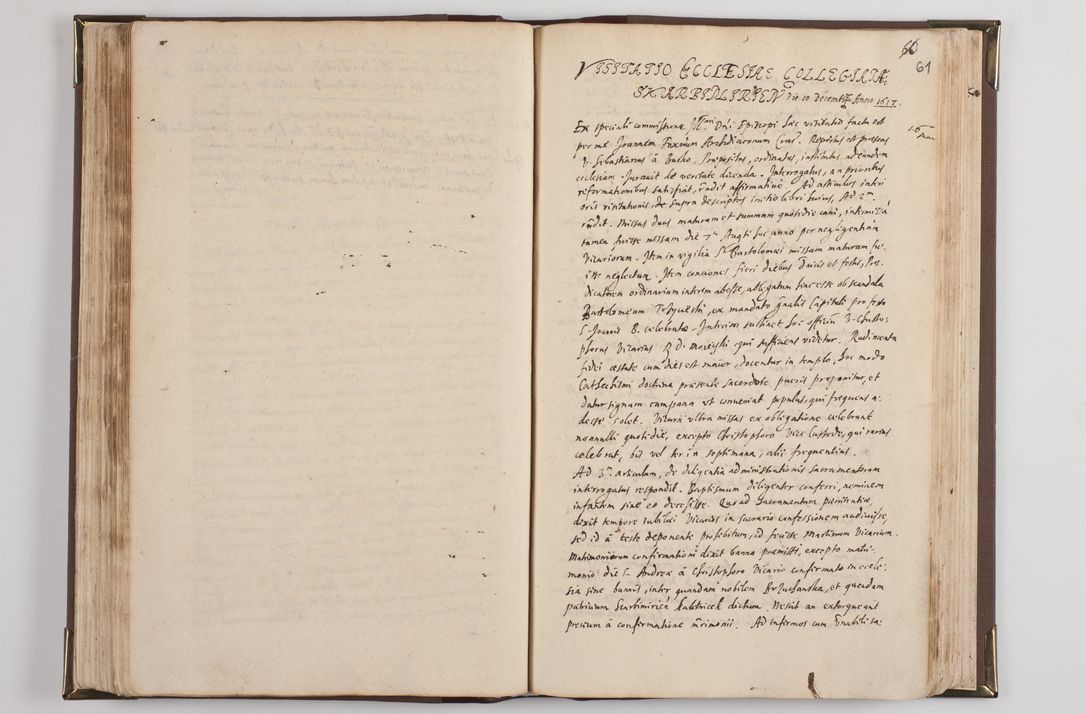 60
61
VISITATIO ECCLESIAE COLLEGIATAE
SKARBIMIRIEN die 10 Decembr Anno 1617.
Ex speciali commissione Ill'mi Dni Episcopi hac visitatio facta est
per me Joannem Foxium Archidiaconum Crac. Repertus est praesens
V. Sebastianus à Busko, Praepositus, ordinatus, institutus ad eandem
ecclesiam. Jurauit de veritate dicenda. Interrogatus, an prioribus
reformationibus satisfiat, rndit affirmatiue. Ad articulos interi
oris visitationis, de supra descriptos initio libri huius, Ad 2m.
rndit. Missas duas maturam et summam quotidie cani, intermissa
tamen fuisse missam die 7a Augti hoc anno per negligentiam
Vicariorum. Item in vigilia S. Bartolomaei missam maturam fu-
isse neglectam. Item conciones fieri diebus Dnicis et festis, Prae-
dicatorem ordinarium interim abesse, ablegatum hinc esse ob scandala
Bartolomeum ex mandato gnalis Capituli pro festo
S. Joannis B. celebratae. Interim sustinet hoc officium V. Christo-
phorus Vicarius R. D. qui sufficiens videtur. Rudimenta
fidei aestate cum dies est maior, docentur in templo, hoc modo
Cathechismi doctrina praesente sacerdote pueris proponitur, et
datur signum campana vt conueniat populus, qui frequens a-
desse solet. Vicarii vltra missas ex obligatione celebrant
nonnulli quotidie, excepto Christophoro Vice Custode, qui rarius
celebrat, bis vel ter in septimana, alii frequentius.
Ad 3m. articulum, de diligentia administrationis Sacramentorum
interrogatus respondit. Baptismum diligenter conferri, neminem
infantem sine eo decessisse. Quo ad Sacramentum paenitentiae,
dixit tempore Iubilaei Vicarios in sacrario confessionem audiuisse,
sed id à teste deponente prohibitum, id fecisse Martinum Vicarium.
Matrimoniorum confirmationi dixit banna praemitti, excepto matri-
monio die S. Andreae à Christophoro Vicario confirmato in eccle-
sia sine bannis, inter quandam nobilem Brzuchanska, et quendam
patricium Scarbimirien Kubtricek dictum. Nescit an extorqueant
precium à confirmatione mrimonii. Ad infirmos cum Vnabili sa-